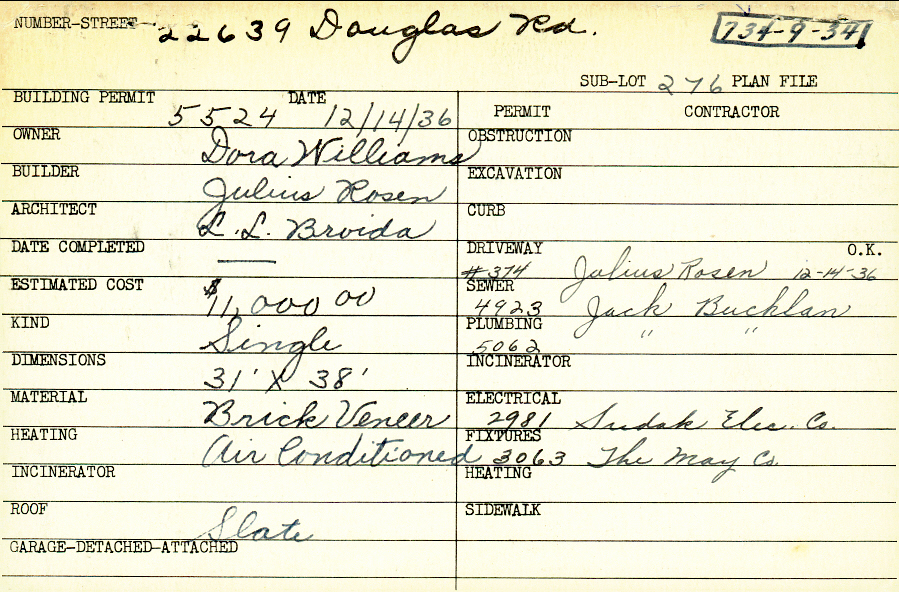 NUMBER-STREET 22639 Douglas Rd. 734-9-34
SUB-LOT 276 PLAN FILE
BUILDING PERMIT 5524 DATE 12/14/36
PERMIT CONTRACTOR
OWNER Dora Williams
OBSTRUCTION
BUILDER Julius Rosen
EXCAVATION
ARCHITECT L.L. Broida
CURB
DATE COMPLETED —
DRIVEWAY O.K.
#374 Julius Rosen 12-14-36
ESTIMATED COST $11,000 00
SEWER
4923 Jack Bucklan
KIND Single
PLUMBING
5062 " "
DIMENSIONS 31' X 38'
INCINERATOR
MATERIAL Brick Veneer
ELECTRICAL
2981 Sudak Elec. Co.
HEATING Air Conditioned
FIXTURES
3063 The May Co.
INCINERATOR
HEATING
ROOF Slate
SIDEWALK
GARAGE-DETACHED-ATTACHED